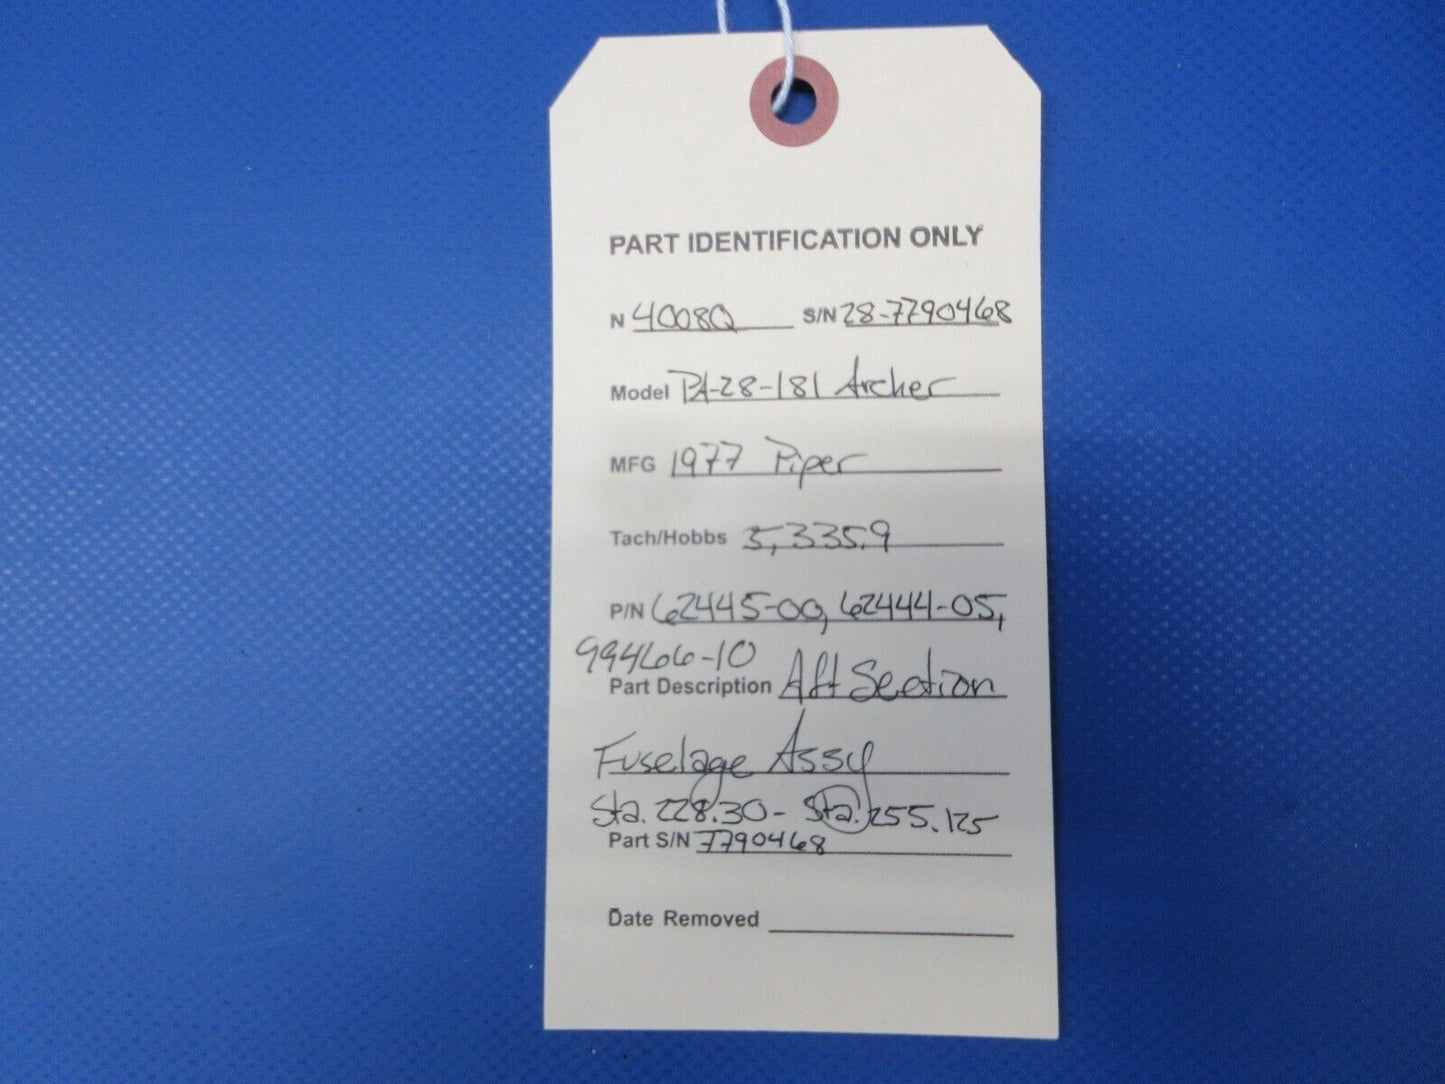 PART IDENTIFICATION ONLY
N 4008Q S/N 28-7790468
Model PA-28-181 Archer
MFG 1977 Piper
Tach/Hobbs 5,335.9
P/N 62445-00, 62444-05,
99466-10
Part Description Aft Section
Fuselage Assy
Sta. 228.30 - Sta. 255.125
Part S/N 7790468
Date Removed